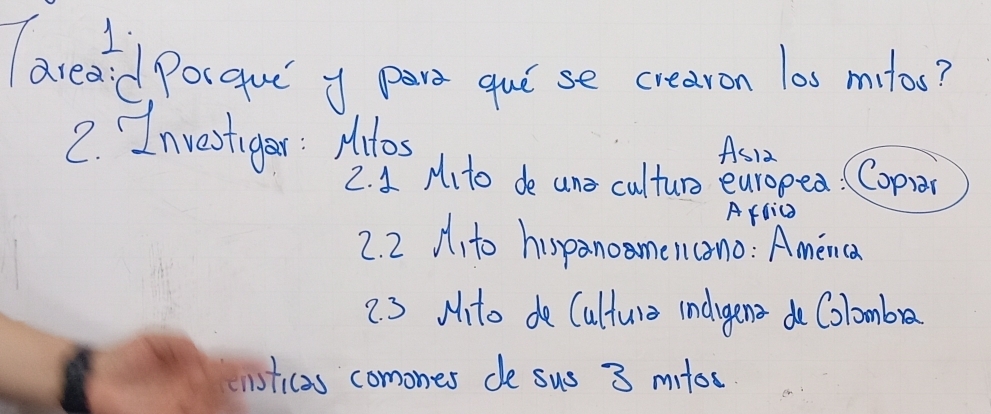 1.
Tarea: ¿Porqué y para qué se crearon los mitos?
2. Investigar: Mitos
Asia
2.1 Mito de una cultura europea: Copiar
Africa
2.2 Mito hispanoamericano: América
2.3 Mito de Cultura indigena de Colombia
comones de sus 3 mitos.